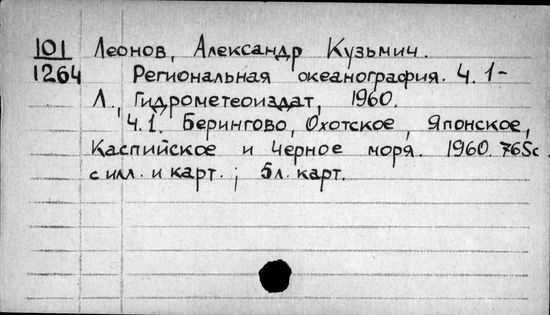 101 Леонов, Александр Кузьмич.
1264 Региональная океанография. Ч. 1-
Л., Гидрометеоиздат, 1960.
Ч.1. Берингово, Охотское, Японское,
Каспийское и Черное моря. 1960. 765с.
с илл. и карт.; 5л. карт.